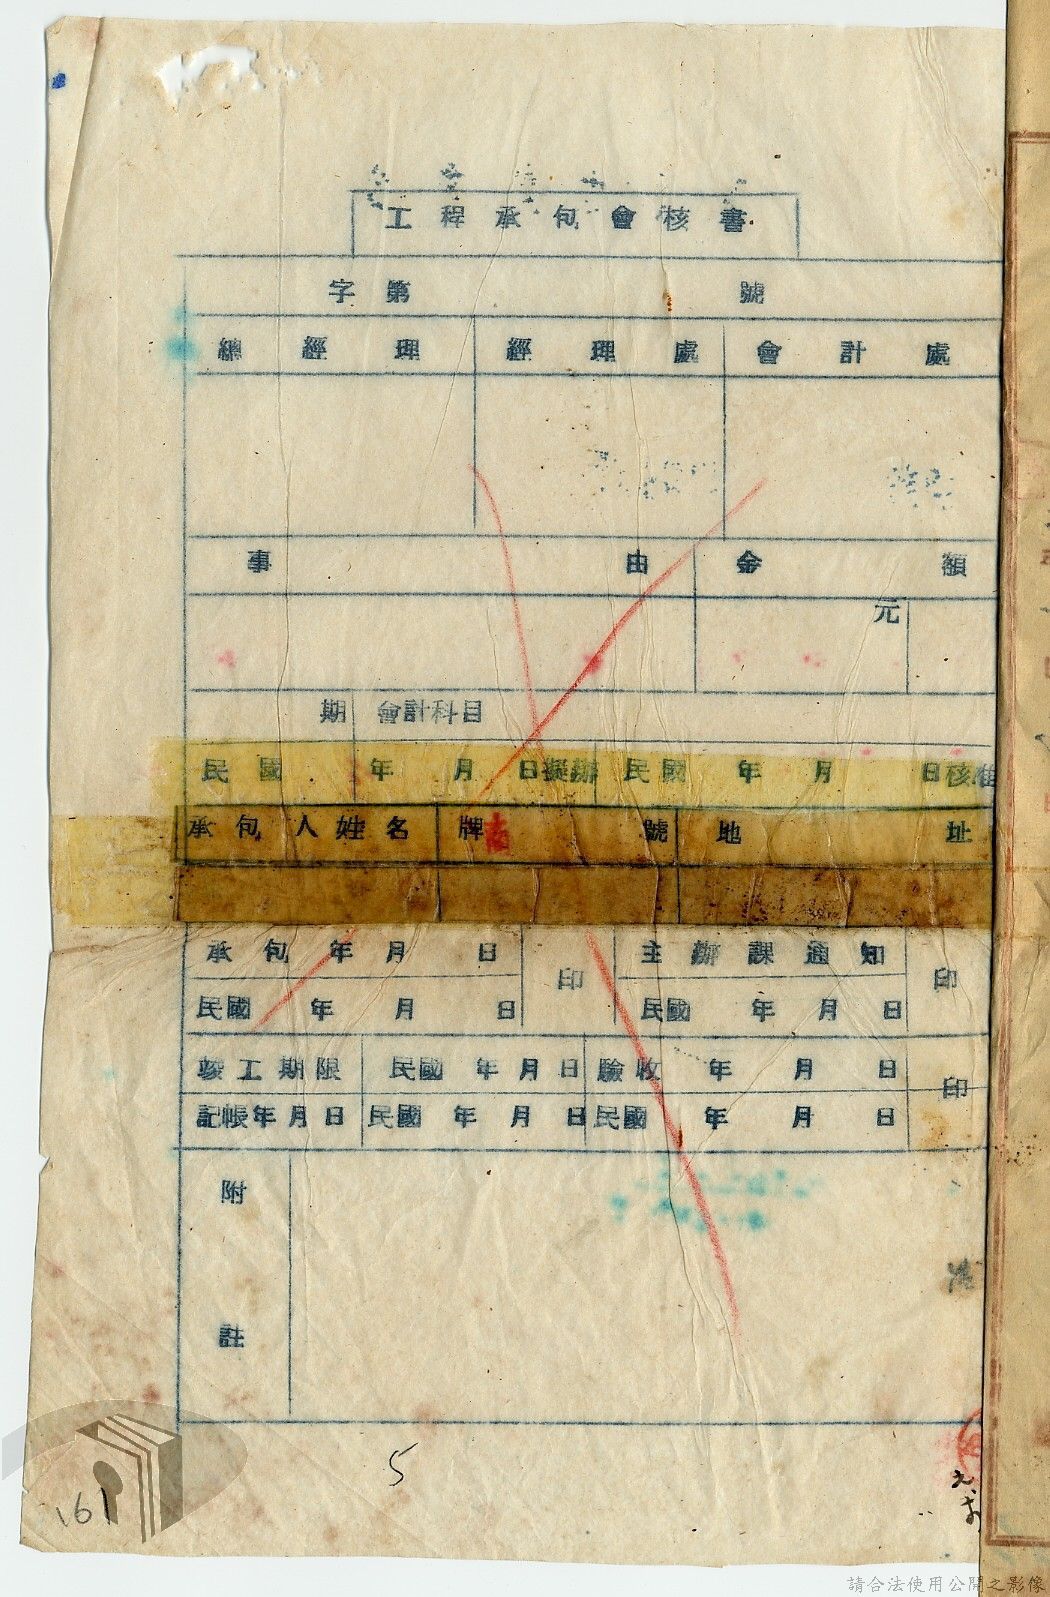 工程承包會核書
字第 號
總經理 經理處 會計處
事由 金額
元
期 會計科目
民國 年 月 日擬辦 民國 年 月 日核准
承包人姓名 牌號 地址
承包 年 月 日 印 主辦課通知 印
民國 年 月 日 民國 年 月 日
竣工期限 民國 年 月 日 驗收 年 月 日 印
記帳年月日 民國 年 月 日 民國 年 月 日
附註
5
161
請合法使用公開之影像